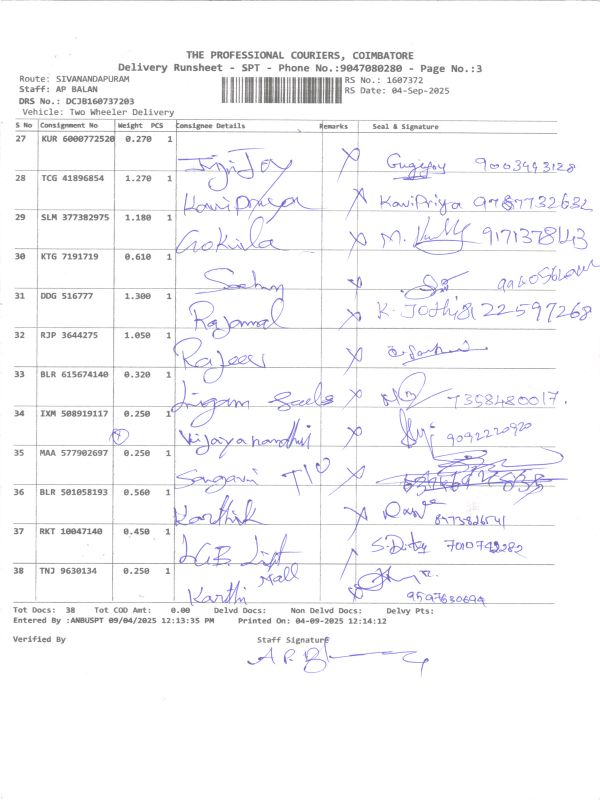 THE PROFESSIONAL COURIERS, COIMBATORE
Delivery Runsheet - SPT - Phone No.:9047080280 - Page No.:3
Route: SIVANANDAPURAM
RS No.: 1607372
Staff: AP BALAN
RS Date: 04-Sep-2025
DRS No.: DCJB160737203
Vehicle: Two Wheeler Delivery
S No Consignment No Weight PCS Consignee Details Remarks Seal & Signature
27 KUR 6000772520 0.270 1
Jiji Joy 9003443128
28 TCG 41896854 1.270 1
KaviPriya KaviPriya 9787732632
29 SLM 377382975 1.180 1
Gokila M.
30 KTG 7191719 0.610 1
31 DDG 516777 1.300 1
Rajammal K. Jothi 597268
32 RJP 3644275 1.050 1
Rajeev
33 BLR 615674140 0.320 1
Lingam Sales 7358480017.
34 IXM 508919117 0.250 1
Vijayanandhni 9092220920
35 MAA 577902697 0.250 1
Sangavi
36 BLR 501058193 0.560 1
Karthik
37 RKT 10047140 0.450 1
LGB
38 TNJ 9630134 0.250 1
Mall
Karthi 9597630694
Tot Docs: 38 Tot COD Amt: 0.00 Delvd Docs: Non Delvd Docs: Delvy Pts:
Entered By :ANBUSPT 09/04/2025 12:13:35 PM Printed On: 04-09-2025 12:14:12
Verified By Staff Signature
A.P.B